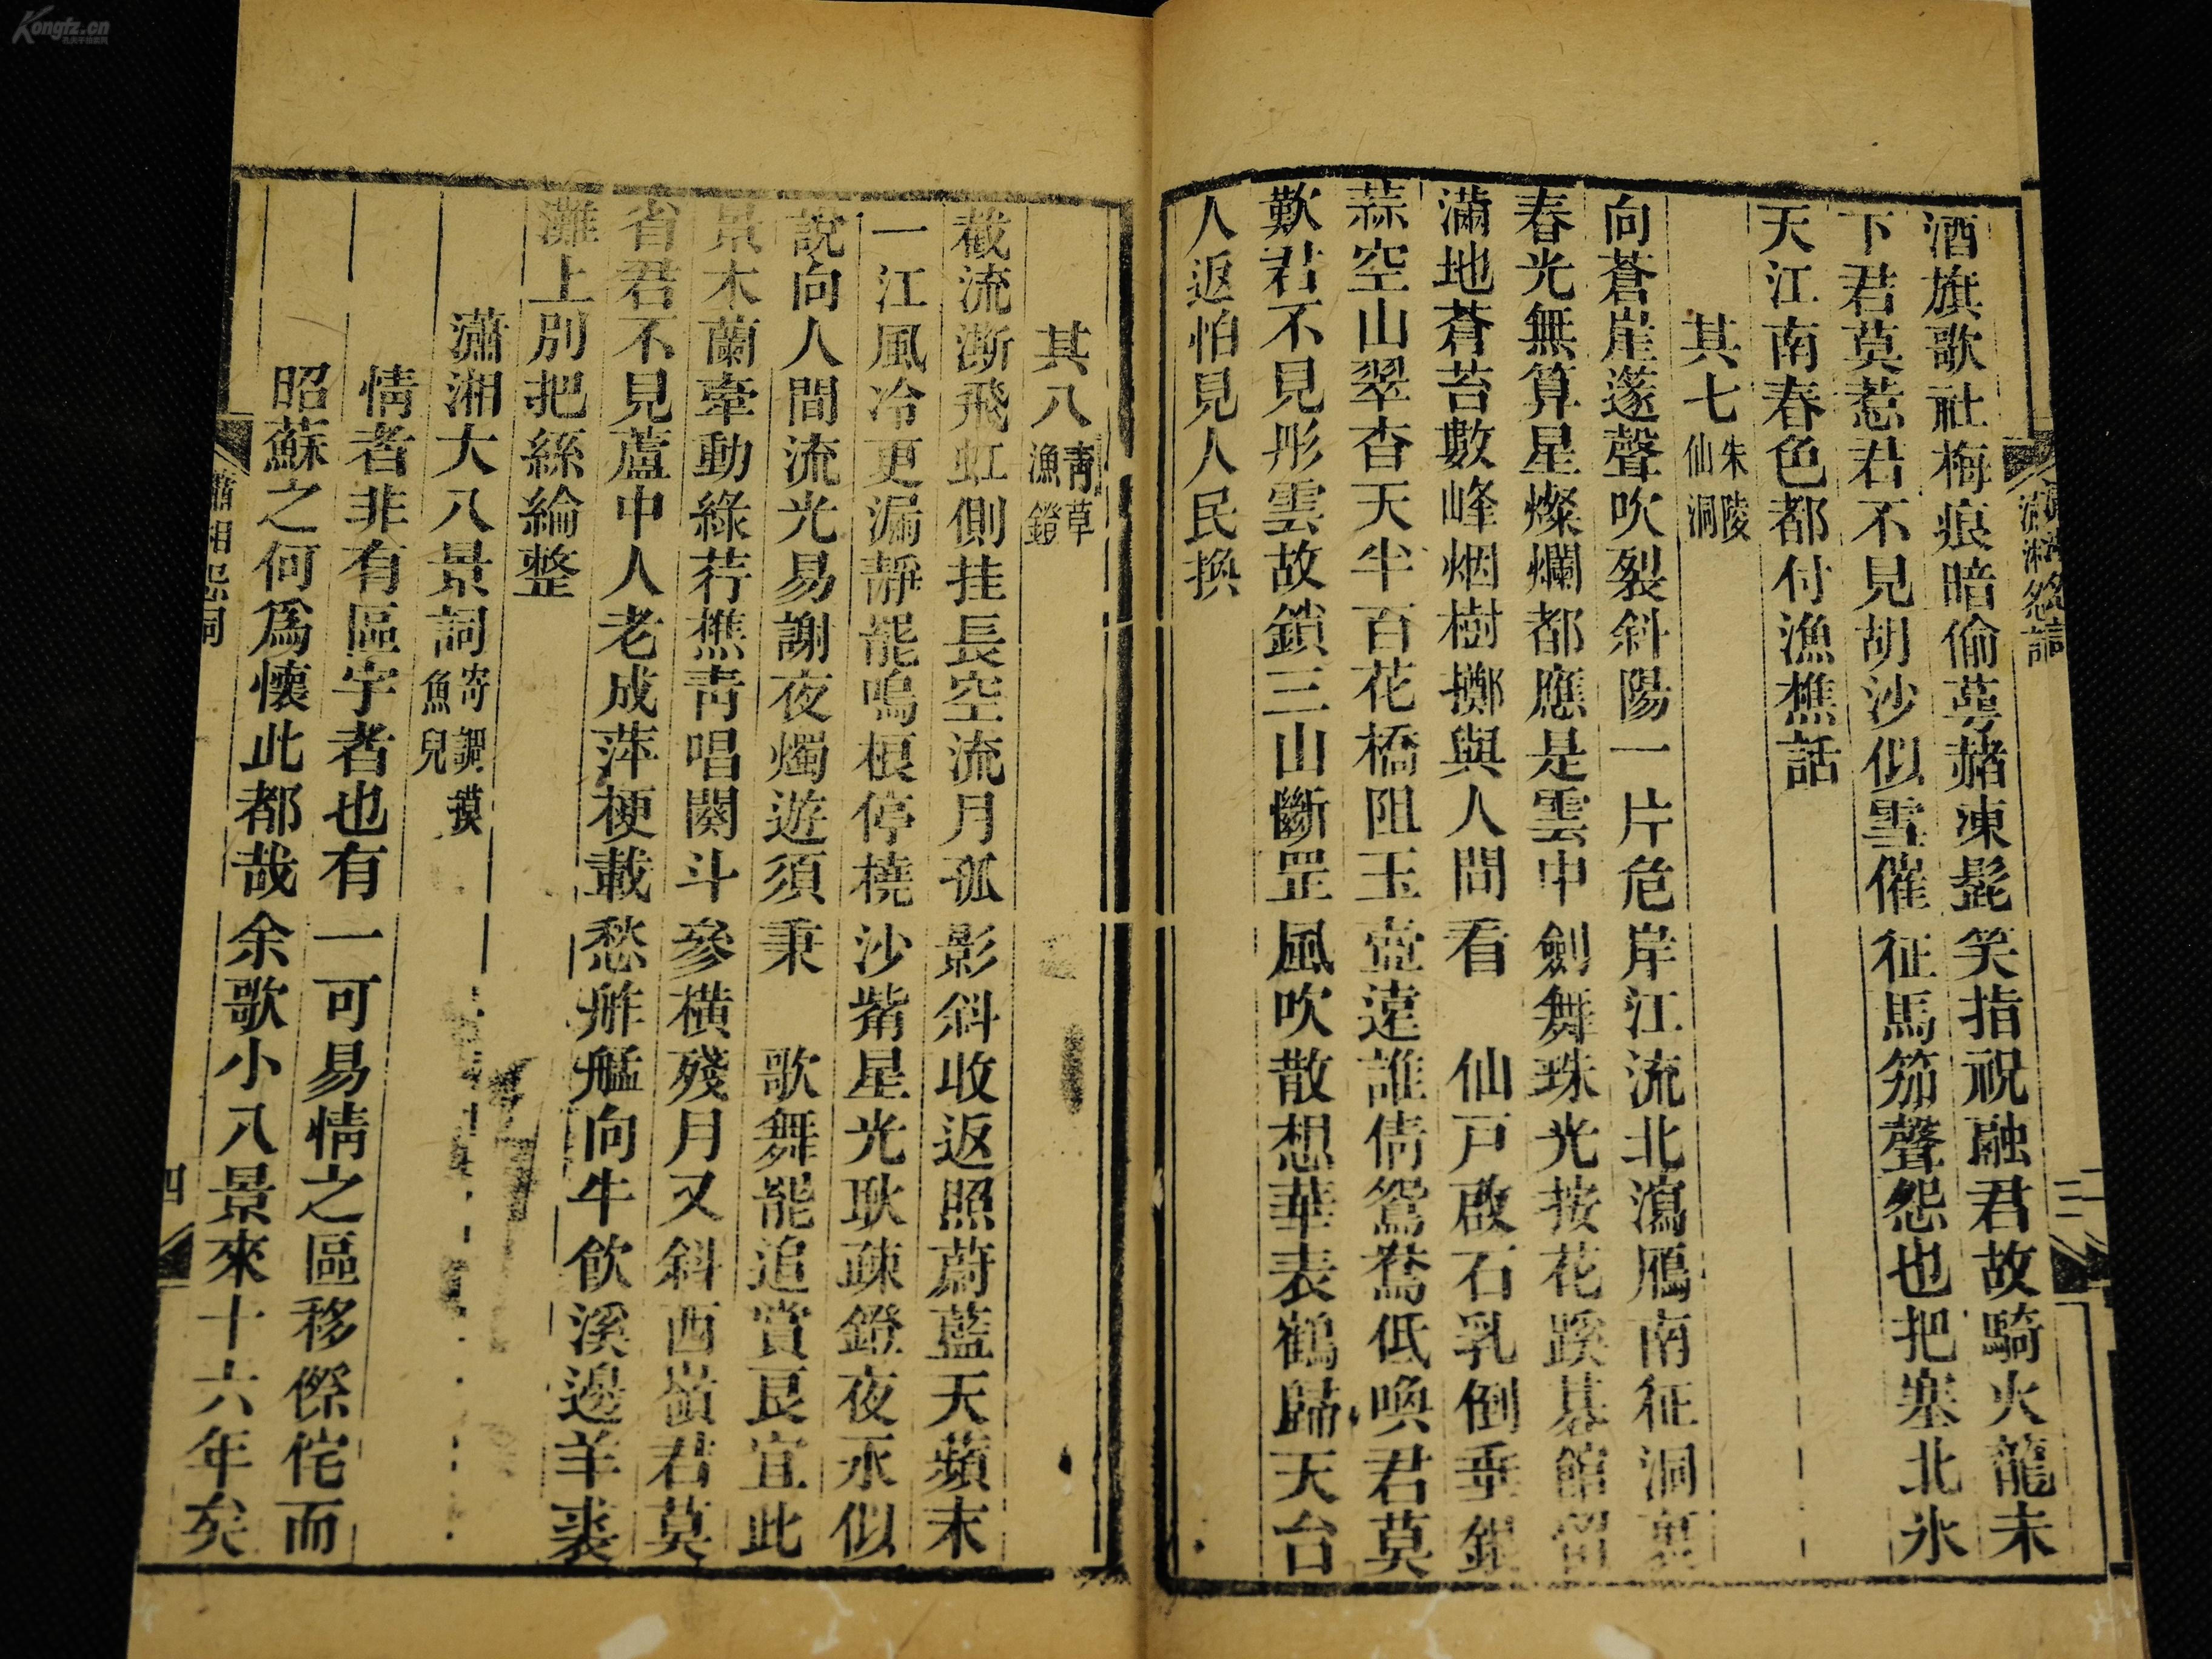 酒旗歌社梅痕暗偷萼赭凍髭笑指祝融君故騎火龍未
下君莫惹君不見胡沙似雪催征馬笳聲怨也把塞北氷
天江南春色都付漁樵話
其七朱陵仙洞
向蒼崖邃聲吹裂斜陽一片危岸江流北瀉鴈南征洞裏
春光無算星燦爛都應是雲中劍舞珠光按花蹊碁館留
滿地蒼苔數峰烟樹擲與人間看　仙戸啟石乳倒垂銀
蒜空山翠杳天半百花橋阻玉壺遠誰倩鴛鴦低喚君莫
歎君不見彤雲故鎖三山斷罡風吹散想華表鶴歸天台
人返怕見人民換
其八青草漁鐙
截流澌飛虹側挂長空流月孤影斜收返照蔚藍天蘋末
一江風冷更漏靜能鳴榔停橈沙觜星光耿疎鐙夜永似
說向人間流光易謝夜燭遊須秉　歌舞能追賞良宜此
景木蘭牽動綠荇樵靑唱闋斗參橫殘月又斜西嶺君莫
省君不見蘆中人老成萍梗載愁舴艋向牛飮溪邊羊裘
灘上別把絲綸整
瀟湘大八景詞寄調摸魚兒
情者非有區宇者也有一可易情之區移傺侘而
昭蘇之何爲懷此都哉余歌小八景來十六年矣
瀟湘怨詞
三
瀟湘怨詞
四
Kongfz.cn